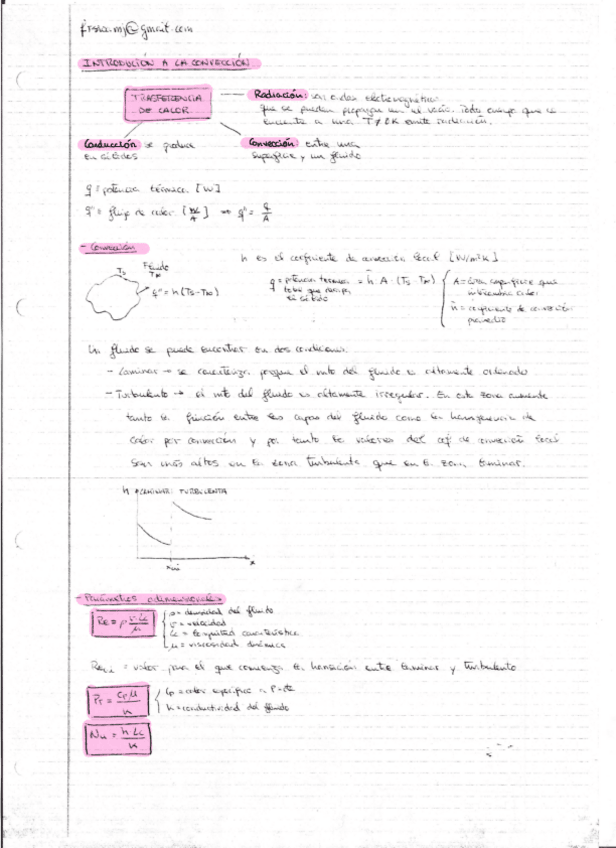 INTRODUCIÓN A LA CONVECCIÓN
TRASFERENCIA
DE CALOR
Radiación: son ondas electromagnéticas
que se pueden propagar en el vacío. Todo cuerpo que se
encuentre a una T ≠ 0K emite radiación.
Conducción se produce
en sólidos
Convección: entre una
superficie y un fluido
q = potencia térmica [W]
q" = flujo de calor → q" = q/A
- Convección
h es el coeficiente de convección local [W/m²K]
Ts Fluido
T∞
q" = h(Ts-T∞)
q = potencia térmica = h̄ A · (Ts-T∞)
total que
el sólido
A = superficie que
intercambia calor
h̄ = coeficiente de convección
promedio
Un fluido se puede encontrar en dos condiciones:
- Laminar → se caracteriza porque el mto del fluido es altamente ordenado
- Turbulento → el mto del fluido es altamente irregular. En esta zona aumenta
tanto la fricción entre las capas del fluido como la transferencia de
calor por convección y por tanto los valores del coef de convección local
son más altos en la zona turbulenta que en la zona laminar.
h LAMINAR TURBULENTA
x
- Parámetros adimensionales
Re = ρ v·Lc/μ
ρ = densidad del fluido
v = velocidad
Lc = longitud característica
μ = viscosidad dinámica
= valor para el que comienza la transición entre laminar y turbulento
Pr = Cp μ/k
Cp = calor específico a P=cte
k = conductividad del fluido
Nu = h Lc/k